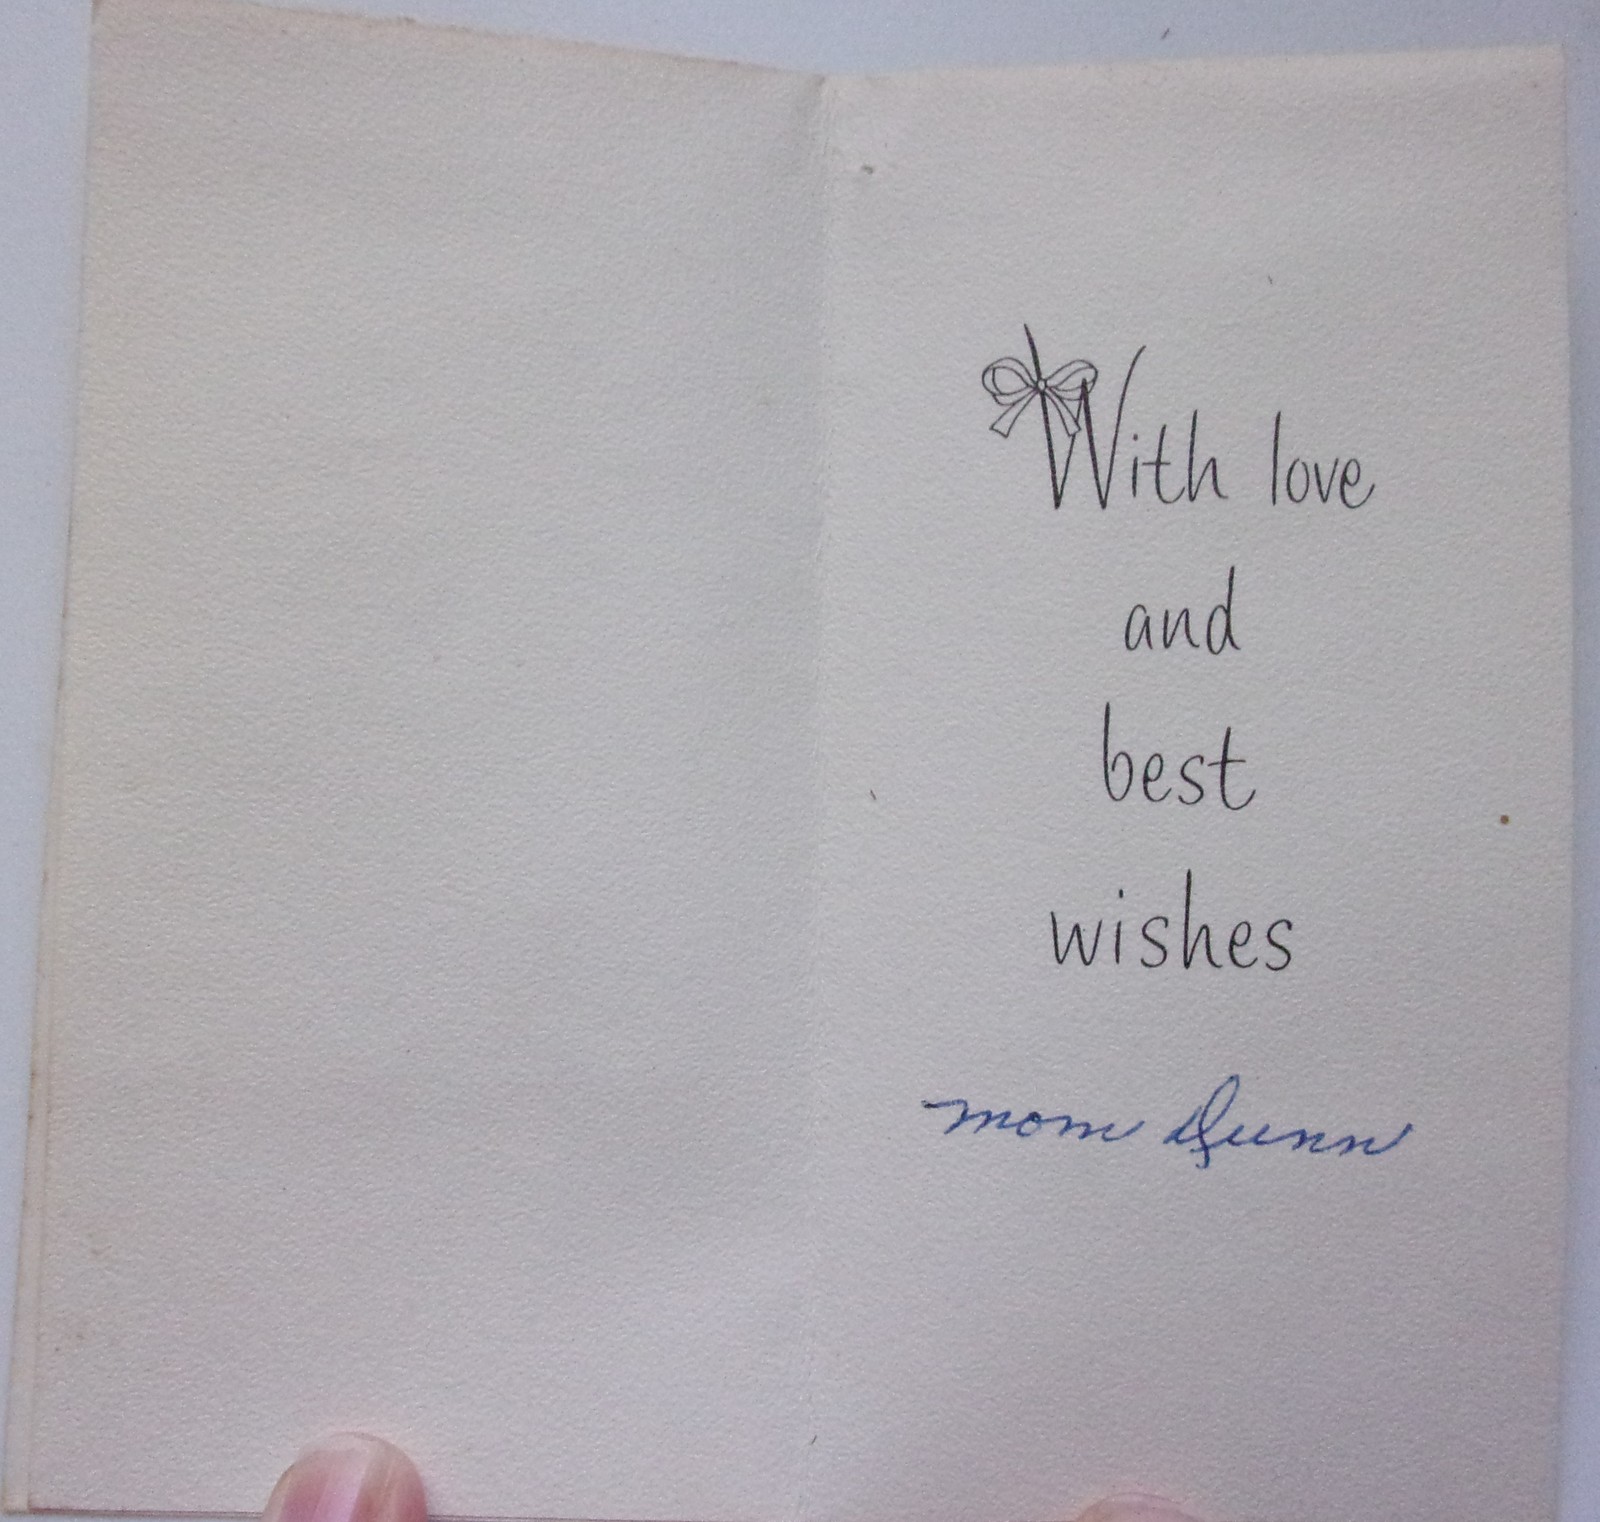 With love
and
best
wishes
mom Dunn